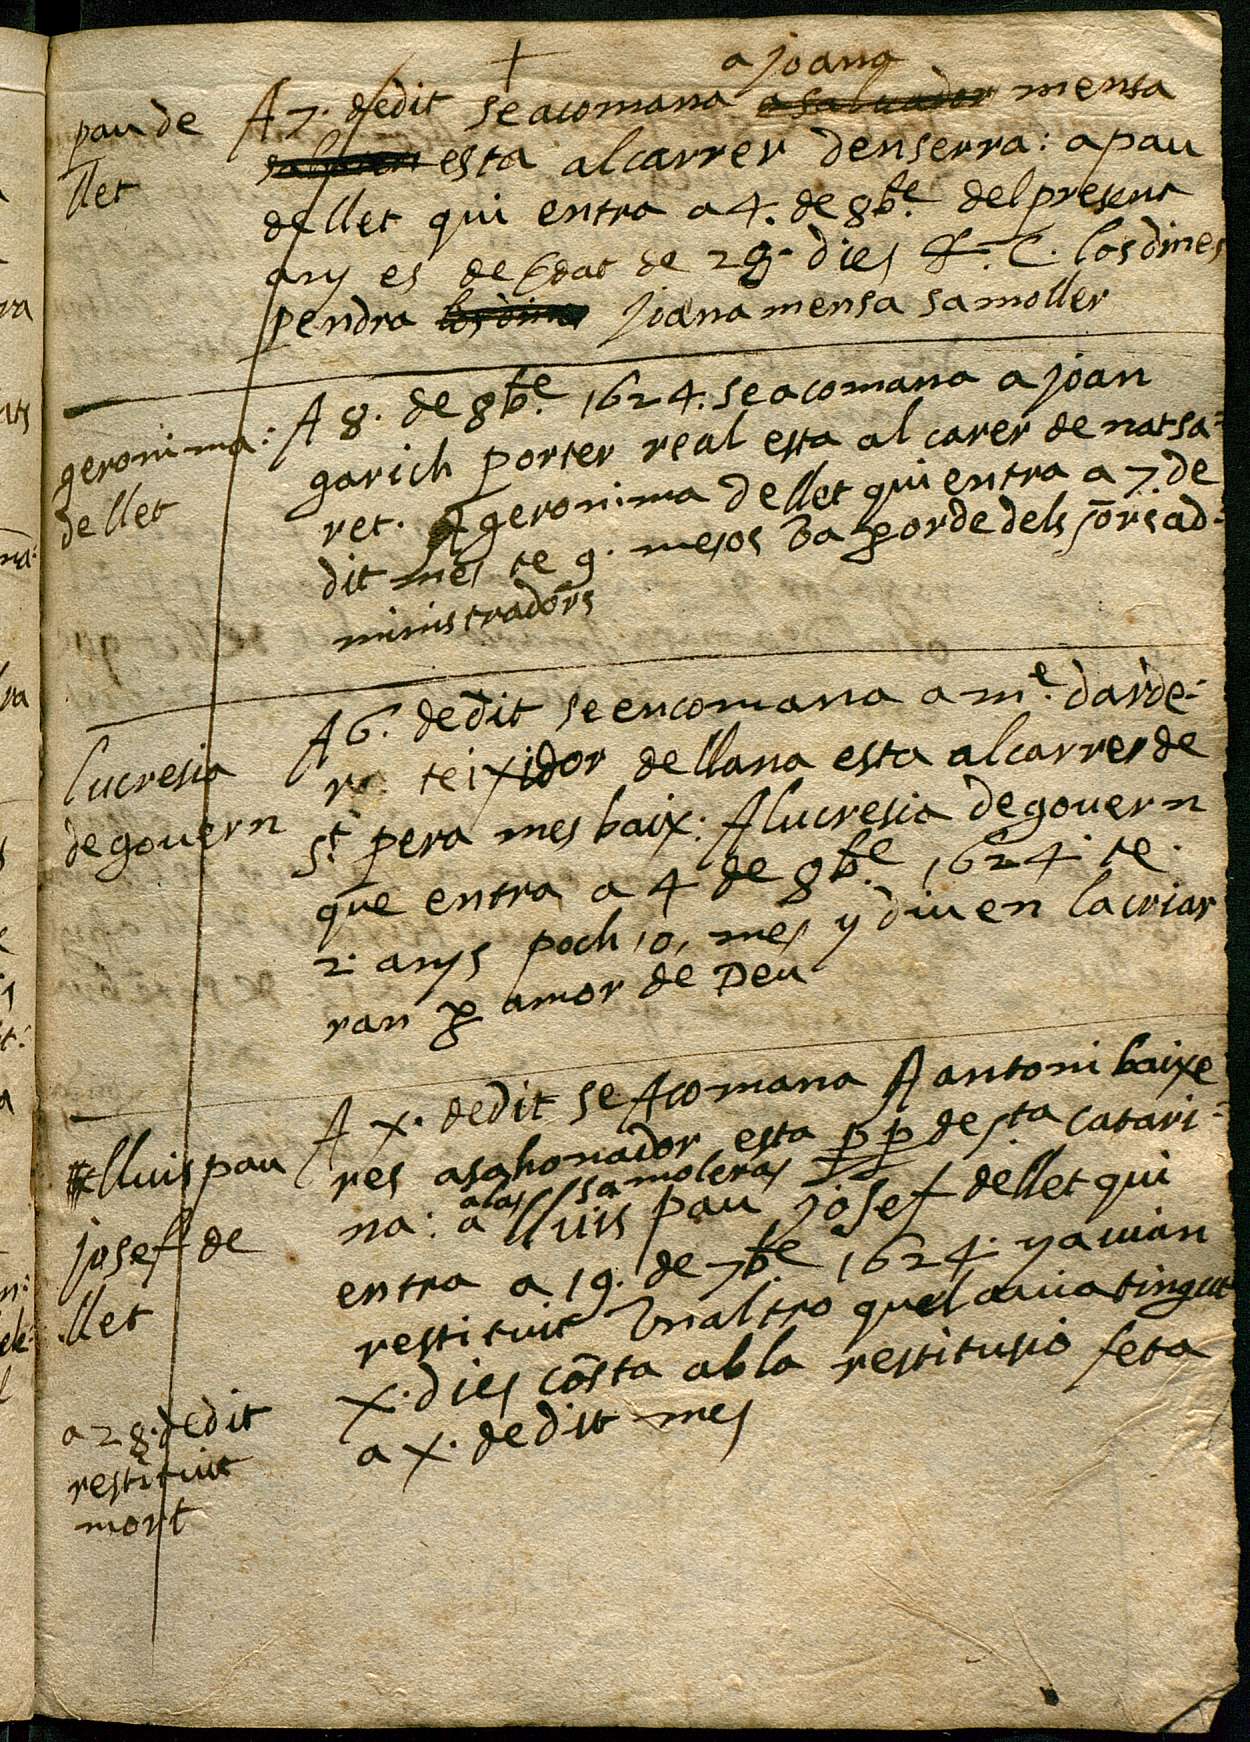 a joana
pau de
llet
A 7. de dit se acomana a saluador mensa
esta al carrer den serra: a pau
de llet qui entra a 4. de 8bre. del present
any es de Edat de 28. dies &. C. los dines
pendra los dines joana mensa sa moller
geronima:
de llet
A 8. de 8bre. 1624. se acomana a joan
garich porter real esta al carer de natsa-
ret. A geronima de llet qui entra a 7. de
dit mes te 9. mesos Va p orde dels sors. ad-
ministradors
lucresia
de gouern
A 6. de dit se encomana a me. darde-
re teixidor de llana esta al carrer de
St. pera mes baix: A lucresia de gouern
que entra a 4 de 8bre 1624. te
2. anys poch, o, mes y diuen la criar
ran p amor de Deu
lluis pau
josef de
llet
A X. de dit se Acomana A antoni baixe
res asahonador esta p p de sta catari-
a las samoleras
na: a lluis pau josef de llet qui
entra a 19. de 7bre 1624. y auian
restituit Vn altro quel auia tingut
X. dies consta ab la restitusio feta
a X. de dit mes
a 28. de dit
restituit
mort